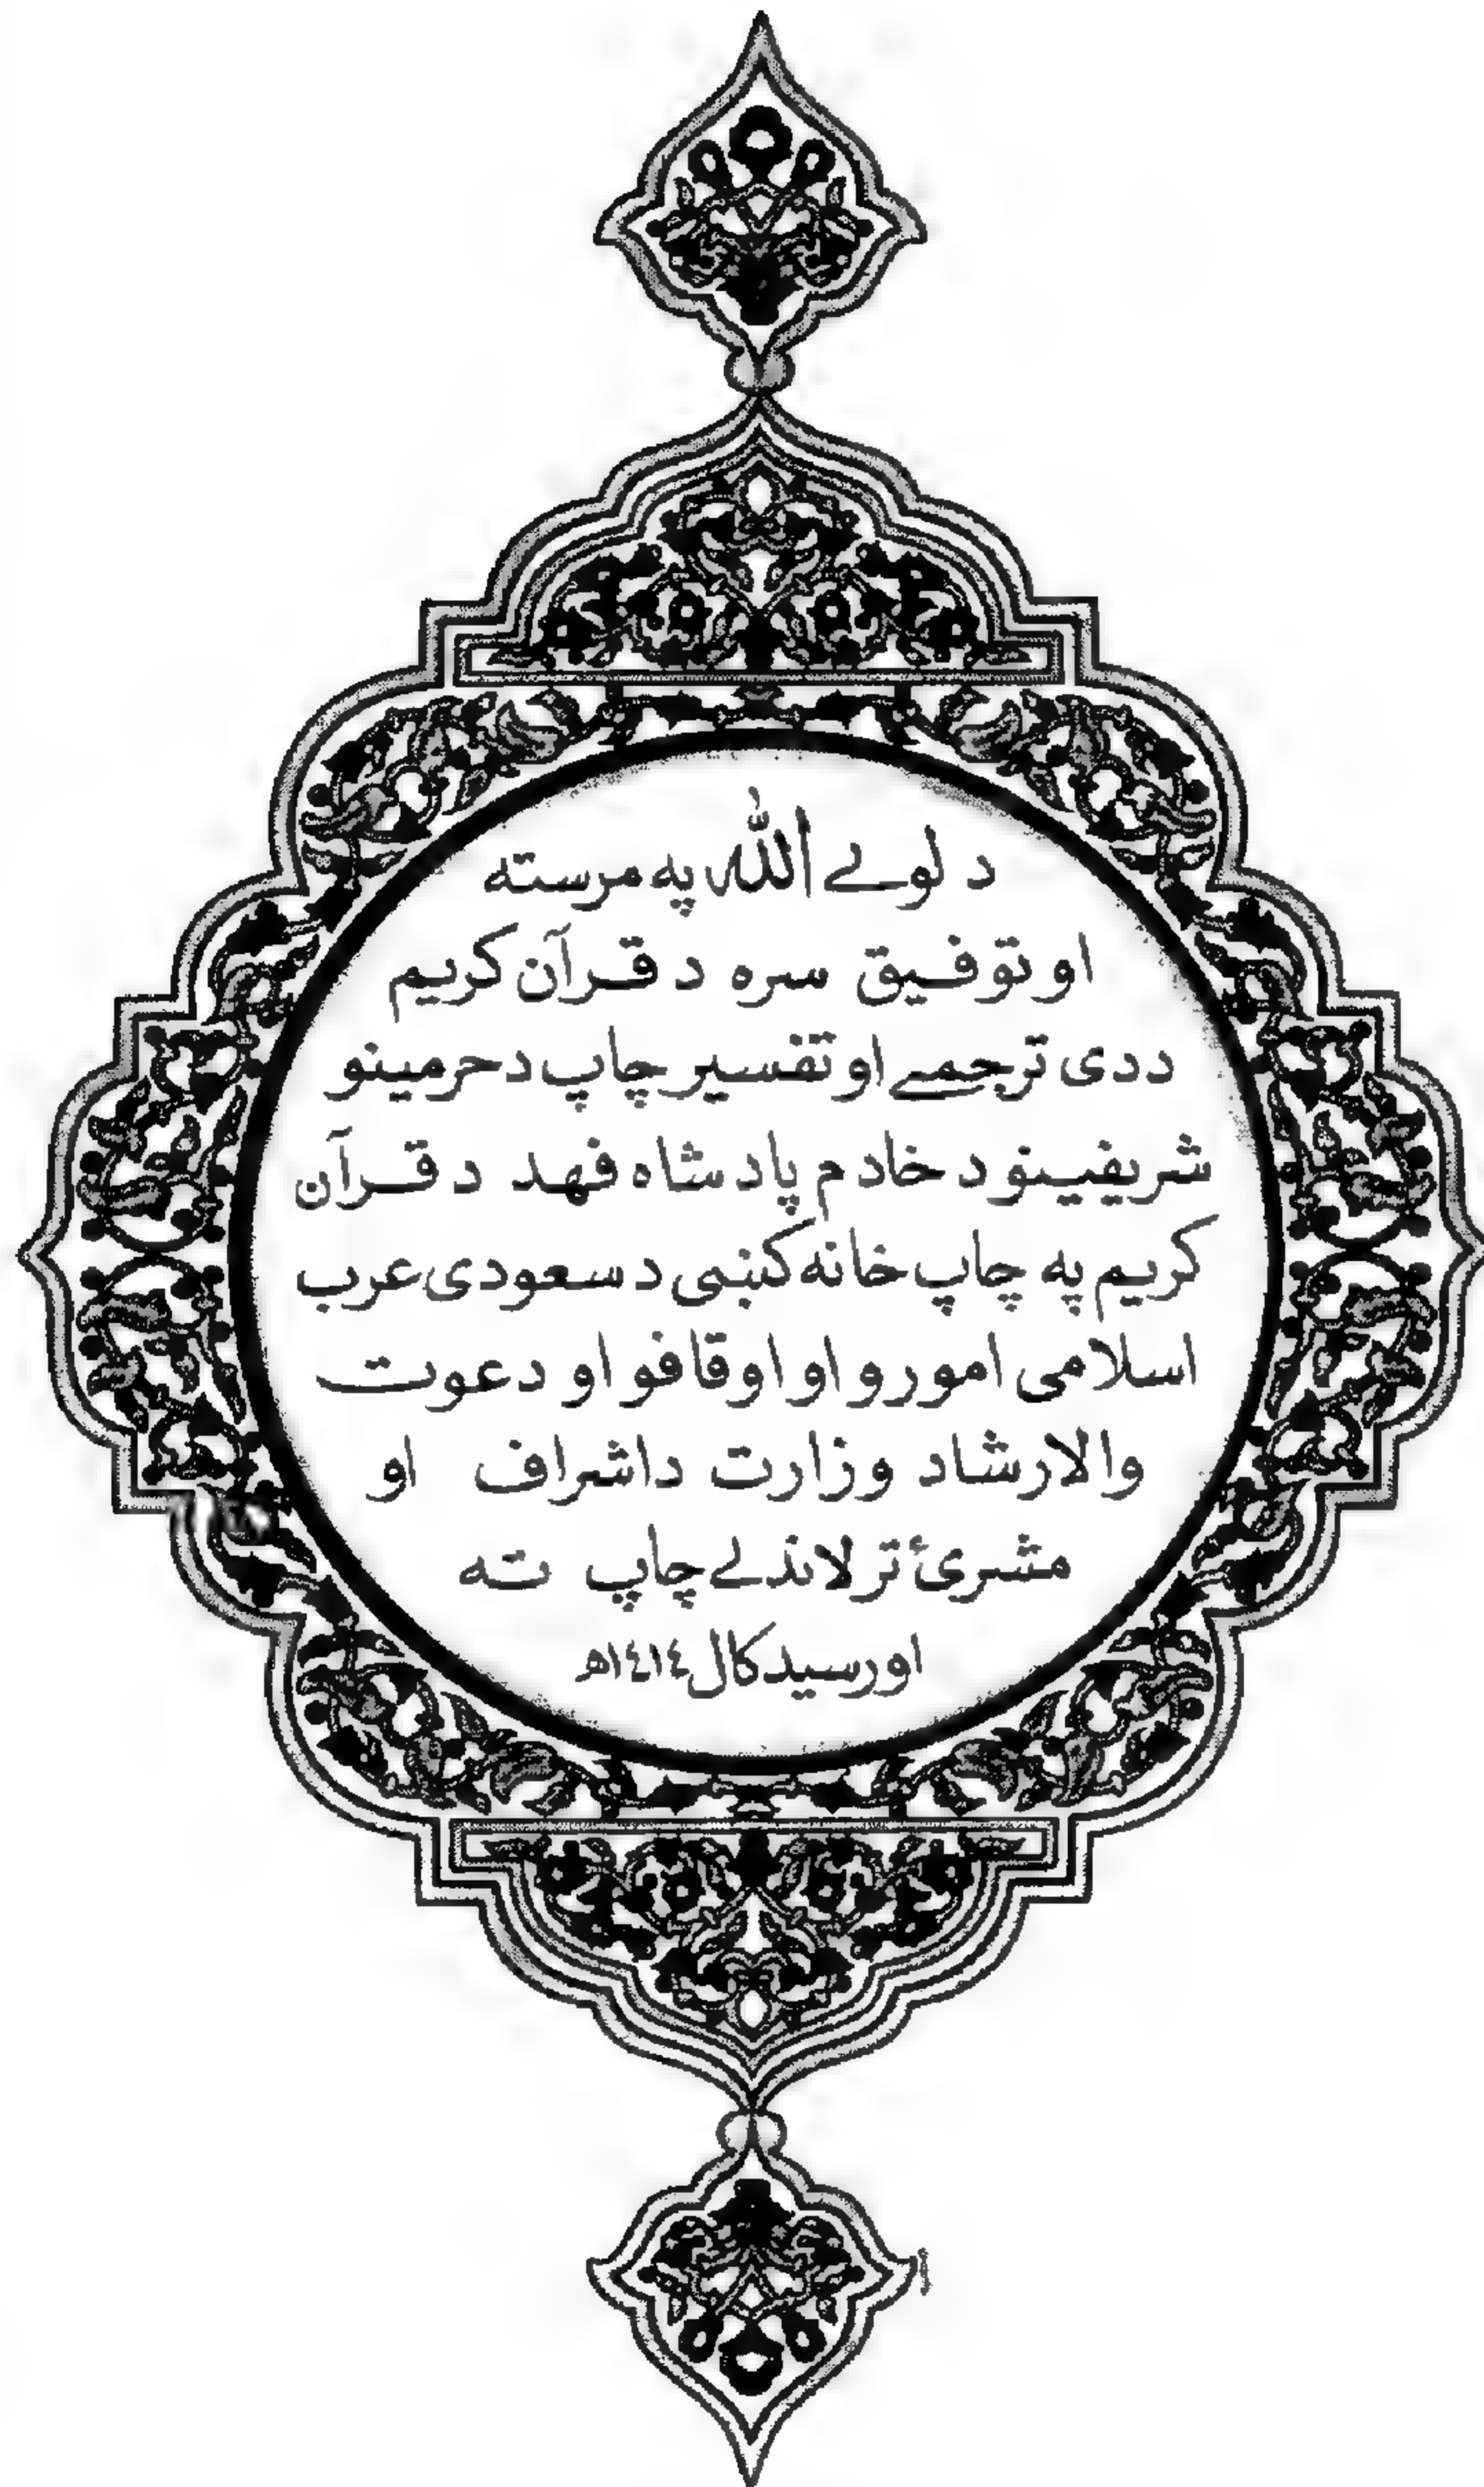 د لوے الله په مرسته
او توفیق سره د قرآن کریم
ددی ترجمے او تفسیر چاپ دحرمینو
شریفینو د خادم پادشاه فهد د قرآن
کریم په چاپ خانه کښی د سعودی عرب
اسلامی امورو او اوقافو او دعوت
والارشاد وزارت داشراف او
مشرئ تر لاندے چاپ ته
اورسید کال ١٤١٤ه